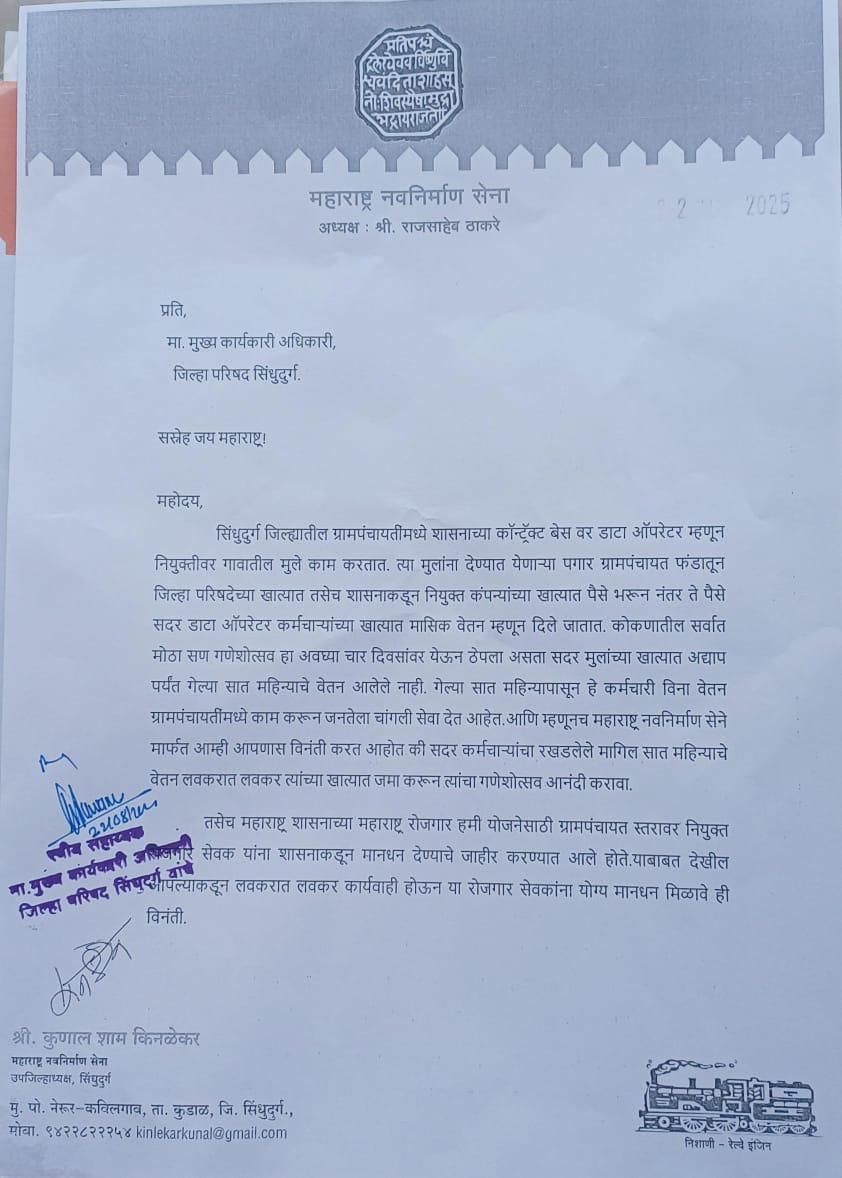 महाराष्ट्र नवनिर्माण सेना
अध्यक्ष : श्री. राजसाहेब ठाकरे
2 2025
प्रति,
मा. मुख्य कार्यकारी अधिकारी,
जिल्हा परिषद सिंधुदुर्ग.
सस्नेह जय महाराष्ट्र!
महोदय,
सिंधुदुर्ग जिल्ह्यातील ग्रामपंचायतींमध्ये शासनाच्या कॉन्ट्रॅक्ट बेस वर डाटा ऑपरेटर म्हणून
नियुक्तीवर गावातील मुले काम करतात. त्या मुलांना देण्यात येणाऱ्या पगार ग्रामपंचायत फंडातून
जिल्हा परिषदेच्या खात्यात तसेच शासनाकडून नियुक्त कंपन्यांच्या खात्यात पैसे भरून नंतर ते पैसे
सदर डाटा ऑपरेटर कर्मचाऱ्यांच्या खात्यात मासिक वेतन म्हणून दिले जातात. कोकणातील सर्वात
मोठा सण गणेशोत्सव हा अवघ्या चार दिवसांवर येऊन ठेपला असता सदर मुलांच्या खात्यात अद्याप
पर्यंत गेल्या सात महिन्याचे वेतन आलेले नाही. गेल्या सात महिन्यापासून हे कर्मचारी विना वेतन
ग्रामपंचायतींमध्ये काम करून जनतेला चांगली सेवा देत आहेत.आणि म्हणूनच महाराष्ट्र नवनिर्माण सेने
मार्फत आम्ही आपणास विनंती करत आहोत की सदर कर्मचाऱ्यांचा रखडलेले मागिल सात महिन्याचे
वेतन लवकरात लवकर त्यांच्या खात्यात जमा करून त्यांचा गणेशोत्सव आनंदी करावा.
तसेच महाराष्ट्र शासनाच्या महाराष्ट्र रोजगार हमी योजनेसाठी ग्रामपंचायत स्तरावर नियुक्त
रोजगार सेवक यांना शासनाकडून मानधन देण्याचे जाहीर करण्यात आले होते.याबाबत देखील
आपल्याकडून लवकरात लवकर कार्यवाही होऊन या रोजगार सेवकांना योग्य मानधन मिळावे ही
विनंती.
स्वीय सहाय्यक
मा.मुख्य कार्यकारी अधिकारी
जिल्हा परिषद सिंधुदुर्ग यांचे
श्री. कुणाल शाम किनळेकर
महाराष्ट्र नवनिर्माण सेना
उपजिल्हाध्यक्ष, सिंधुदुर्ग
मु. पो. नेरूर-कविलगाव, ता. कुडाळ, जि. सिंधुदुर्ग.,
मोबा. ९४२२८२२२५४ kinlekarkunal@gmail.com
निशाणी - रेल्वे इंजिन